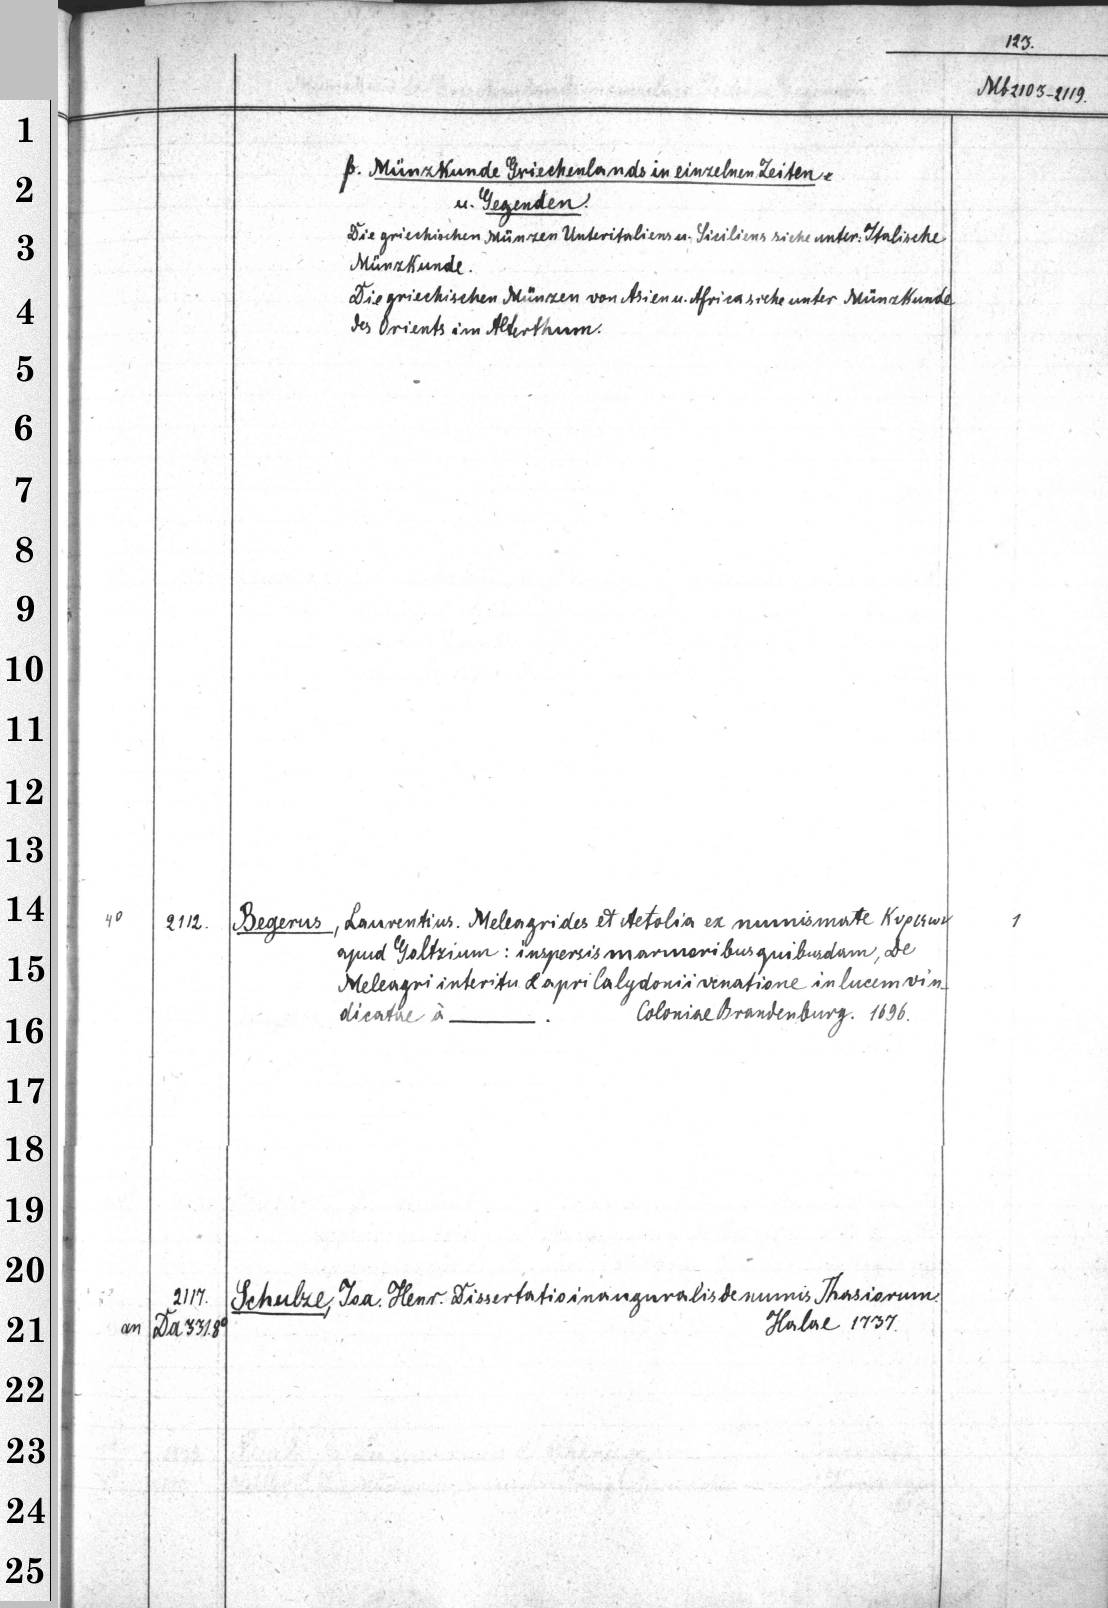 123.
Mb 2103-2119.
β. Münzkunde Griechenlands in einzelnen Zeiten
u. Gegenden.
Die griechischen Münzen Unteritaliens u. Siciliens siehe unter: Italische
Münzkunde.
Die griechischen Münzen von Asien u. Africa siehe unter Münzkunde
des Orients im Alterthum.
4° 2112. Begerus, Laurentius. Meleagrides et Aetolia ex numismate Κυριεων 1
apud Goltzium: inspersis marmoribus quibusdam, De
Meleagri interitu & apri Calydonii venatione in lucem vin-
dicatae à ______. Coloniae Brandenburg. 1696.
2117. Schulze, Joa. Henr. Dissertatio inauguralis de numis Thasiorum.
an Da 331.8° Halae 1737.
1
2
3
4
5
6
7
8
9
10
11
12
13
14
15
16
17
18
19
20
21
22
23
24
25